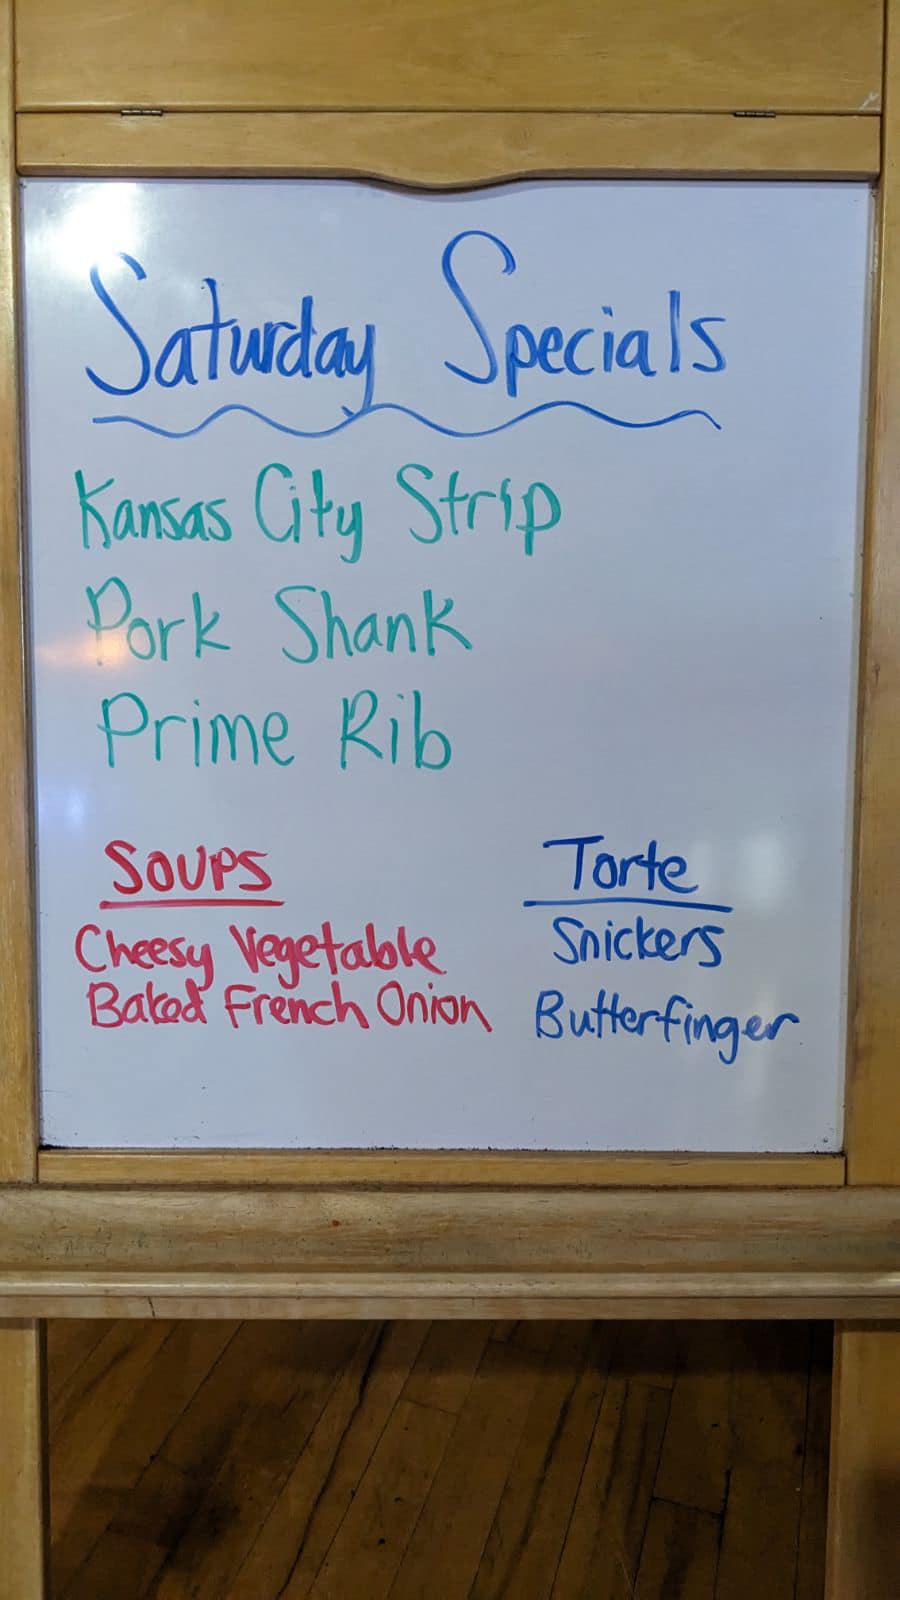 Saturday Specials
Kansas City Strip
Pork Shank
Prime Rib
SOUPS
Cheesy Vegetable
Baked French Onion
Torte
Snickers
Butterfinger